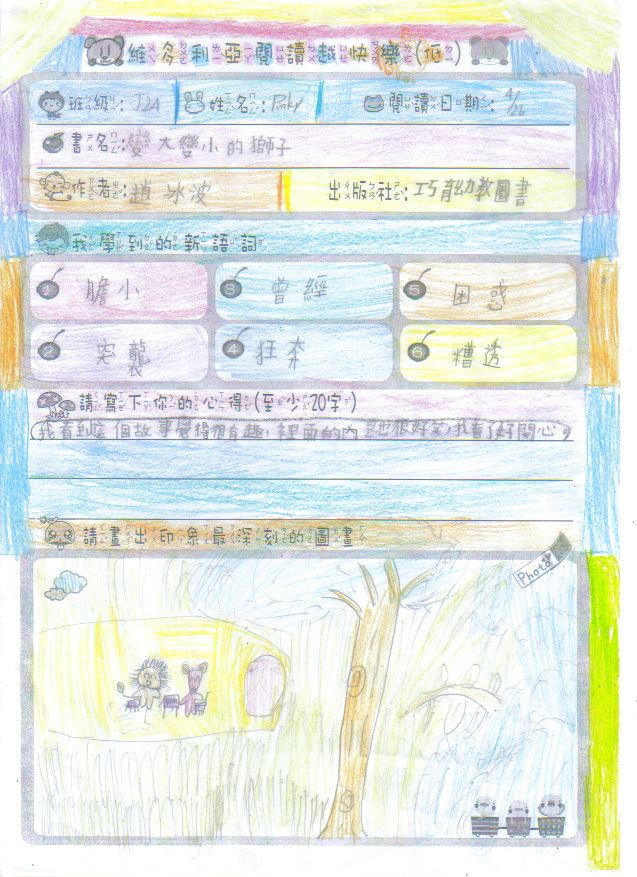 維多利亞閱讀越快樂(低)
班級:J2A 姓名:Pinky 閱讀日期:4/26
書名:變大變小的獅子
作者:趙冰波 出版社:巧育幼教圖書
我學到的新語詞
1 膽小 3 曾經 5 困惑
2 突襲 4 狂奔 6 糟透
請寫下你的心得(至少20字)
我看到這個故事覺得很有趣,裡面的內也很好笑,我看了好開心。
請畫出印象最深刻的圖畫
Photo